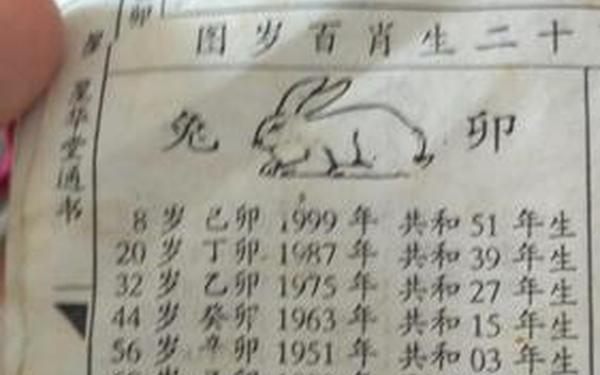 卯
图岁百肖生二十
星华堂通书
兔 卯
8 岁 己卯 1999 年 共和 51 年生
20 岁 丁卯 1987 年 共和 39 年生
32 岁 乙卯 1975 年 共和 27 年生
44 岁 癸卯 1963 年 共和 15 年生
56 岁 辛卯 1951 年 共和 03 年生